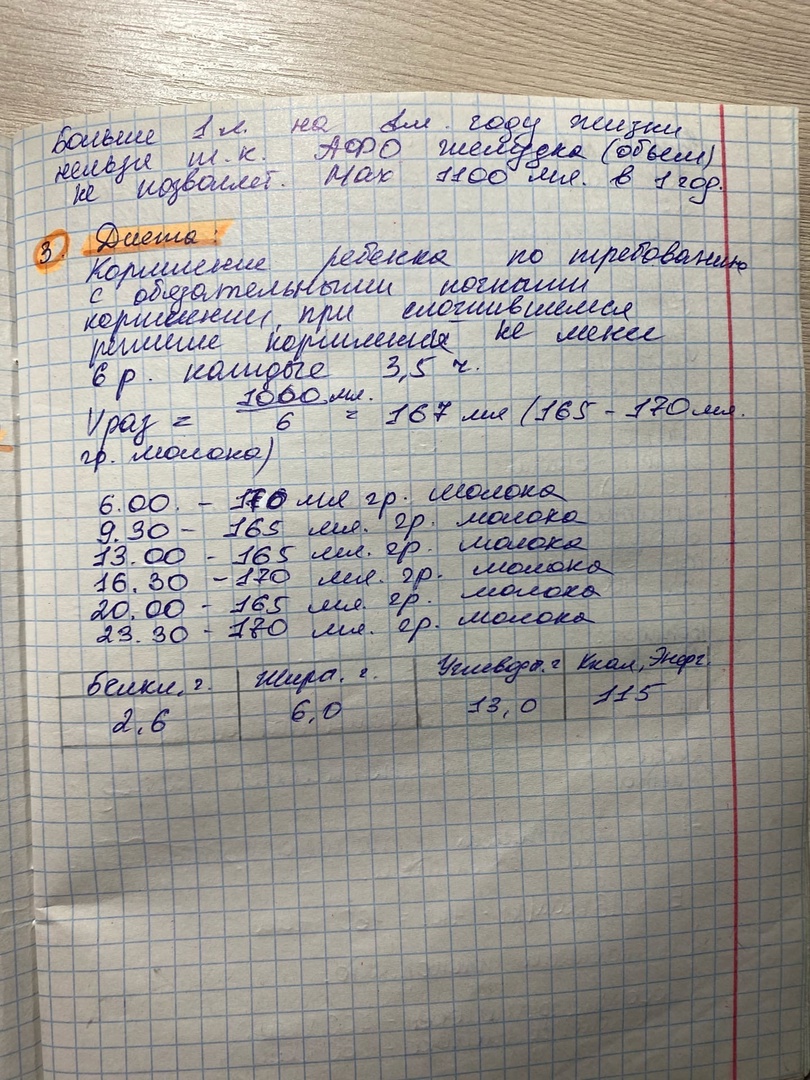 Больше 1 л. на 1м. году жизни
нельзя т.к. АФО желудка (объем)
не позволяет. Max 1100 мл. в 1 год.
3. Диета:
Кормление ребенка по требованию
с обязательными ночными
кормлении, при сложившемся
режиме кормления не менее
6 р. каждые 3,5 ч.
Vраз = 1000 мл. / 6 = 167 мл (165 - 170 мл.
гр. молока)
6.00. - 170 мл гр. молока
9.30 - 165 мл. гр. молока
13.00 - 165 мл. гр. молока
16.30 - 170 мл. гр. молока
20.00 - 165 мл. гр. молока
23.30 - 170 мл. гр. молока
Белки, г. Жира. г. Углеводы. г Ккал, Энерг.
2,6 6,0 13,0 115